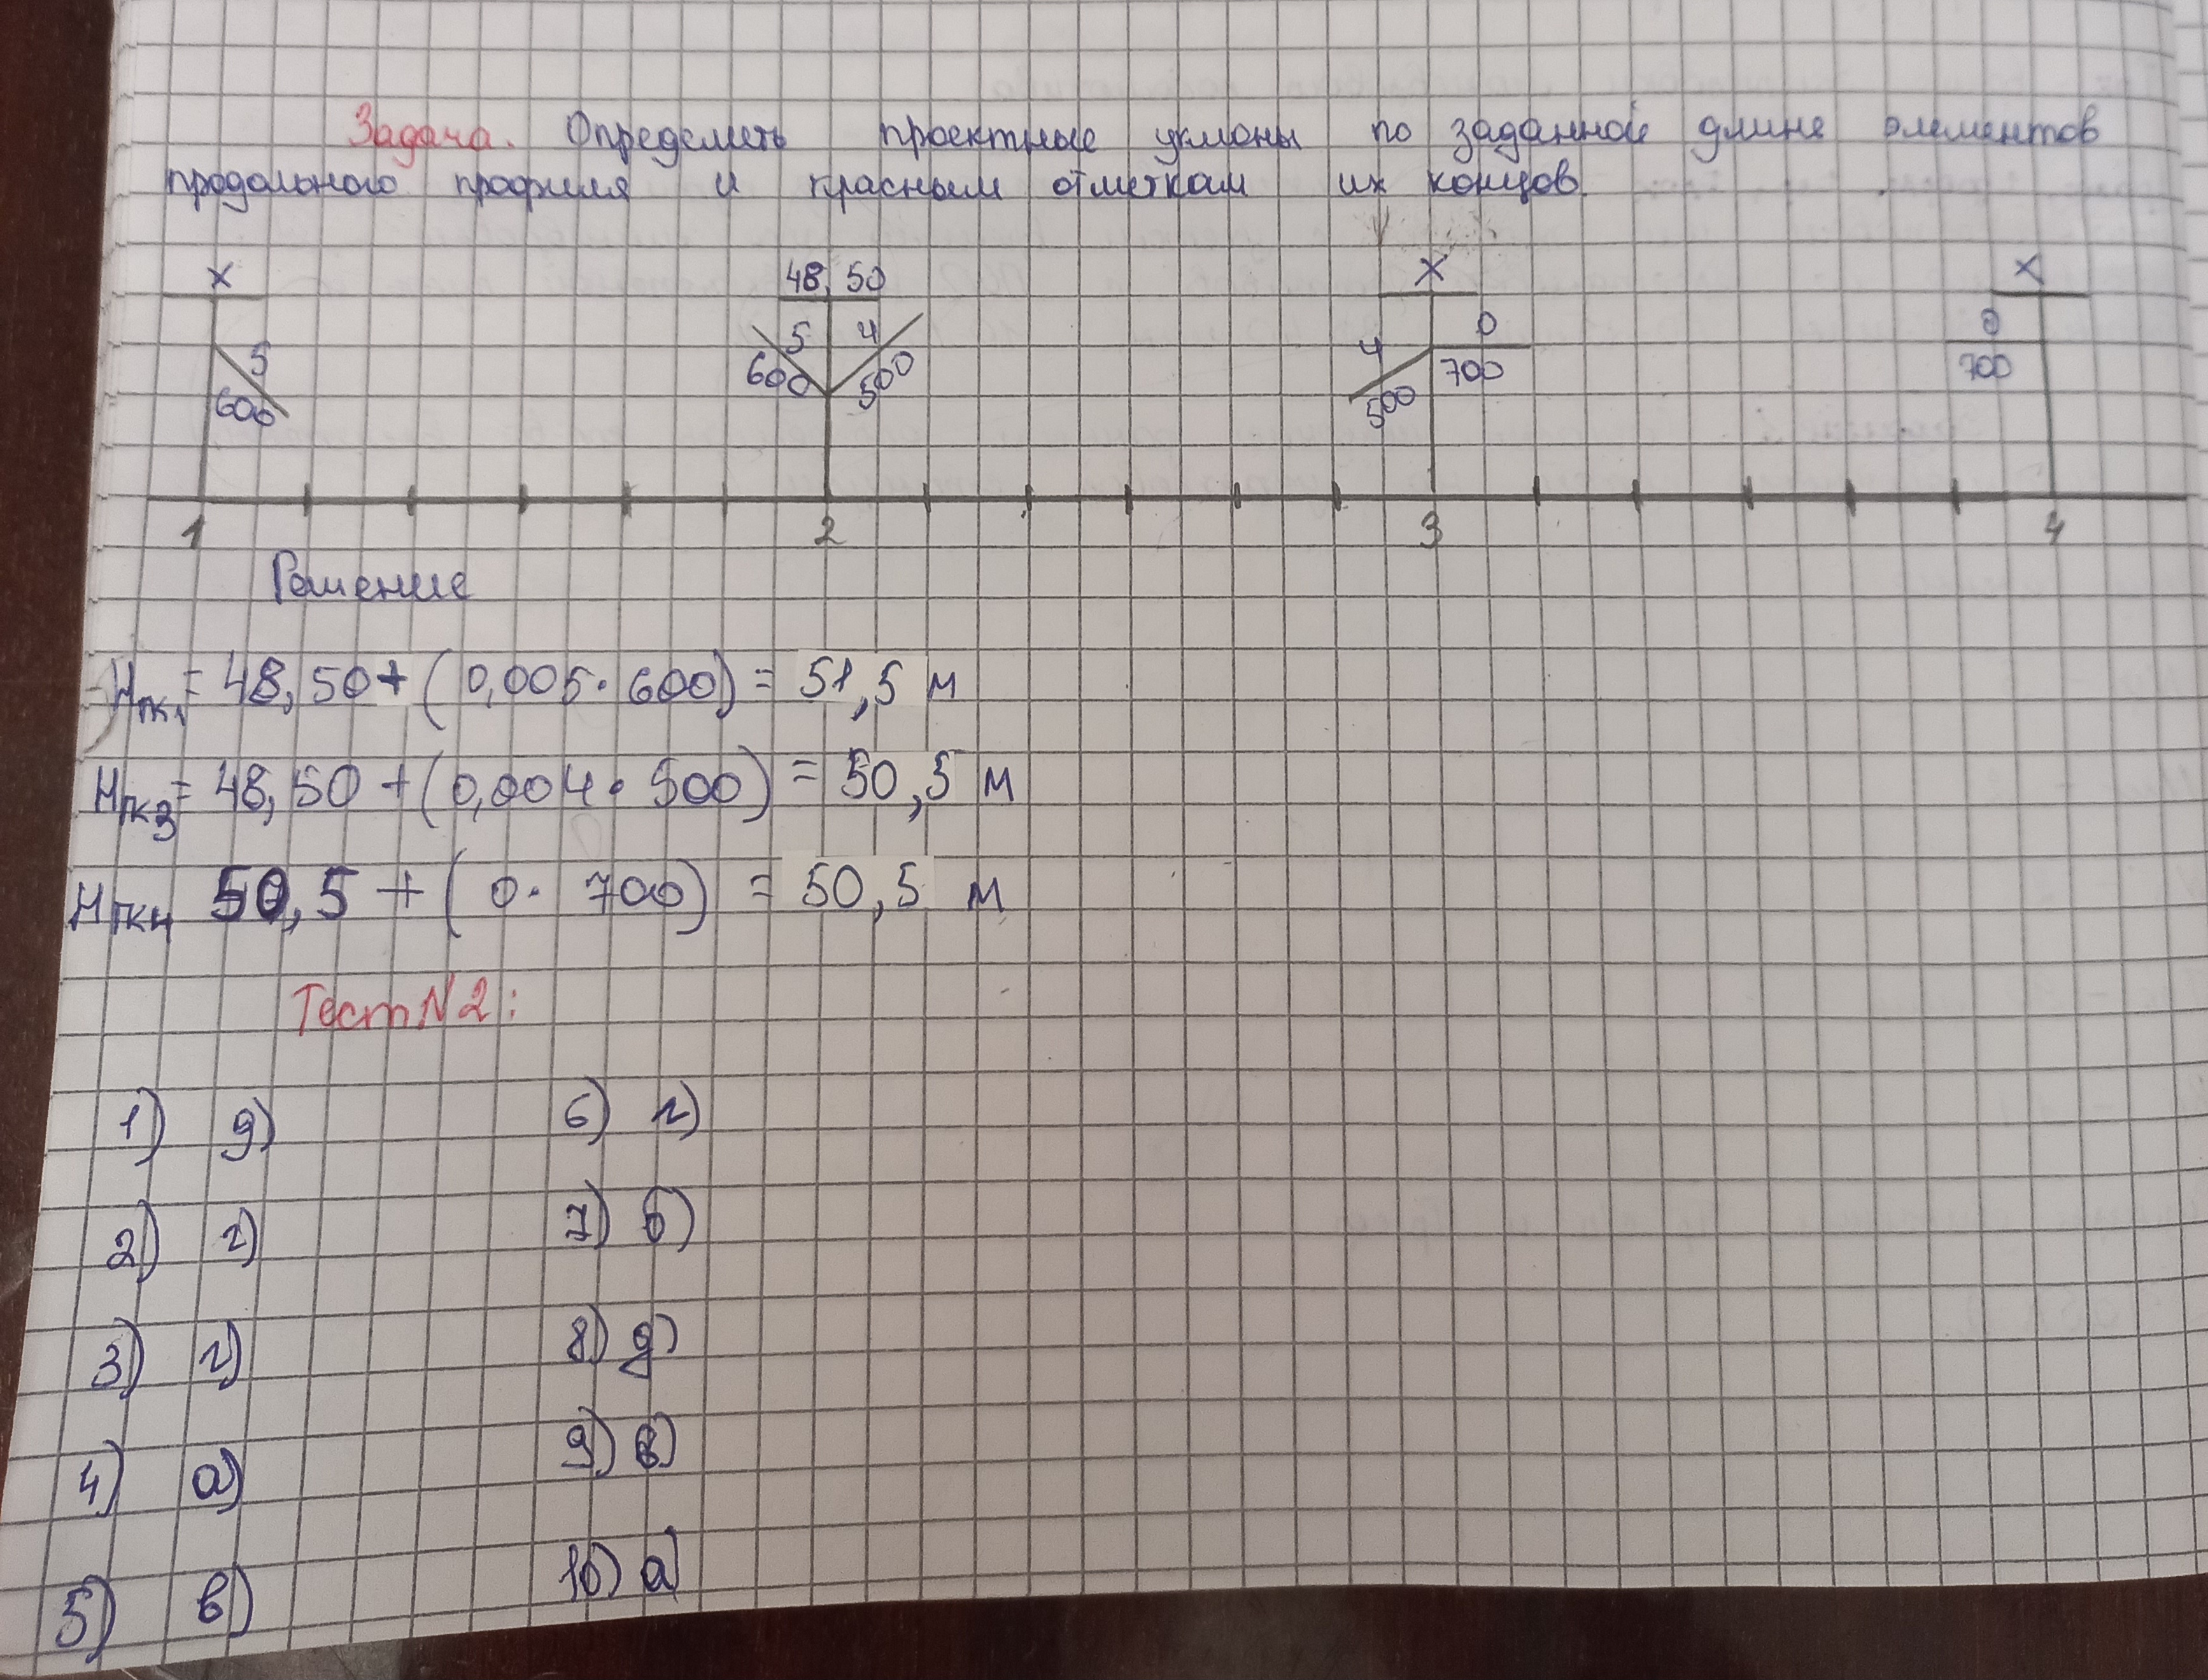 Задача. Определить проектные уклоны по заданной длине элементов
продольного профиля и красным отметкам их концов.
X 48,50 X X
5 600 5 600 4 500 4 500 0 700 0 700
1 2 3 4
Решение
Hпк1 = 48,50 + (0,005 · 600) = 51,5 м
Hпк3 = 48,50 + (0,004 · 500) = 50,5 м
Hпк4 50,5 + (0 · 700) = 50,5 м
Тест N2:
1) д) 6) г)
2) г) 7) б)
3) г) 8) д)
4) а) 9) в)
5) в) 10) а)